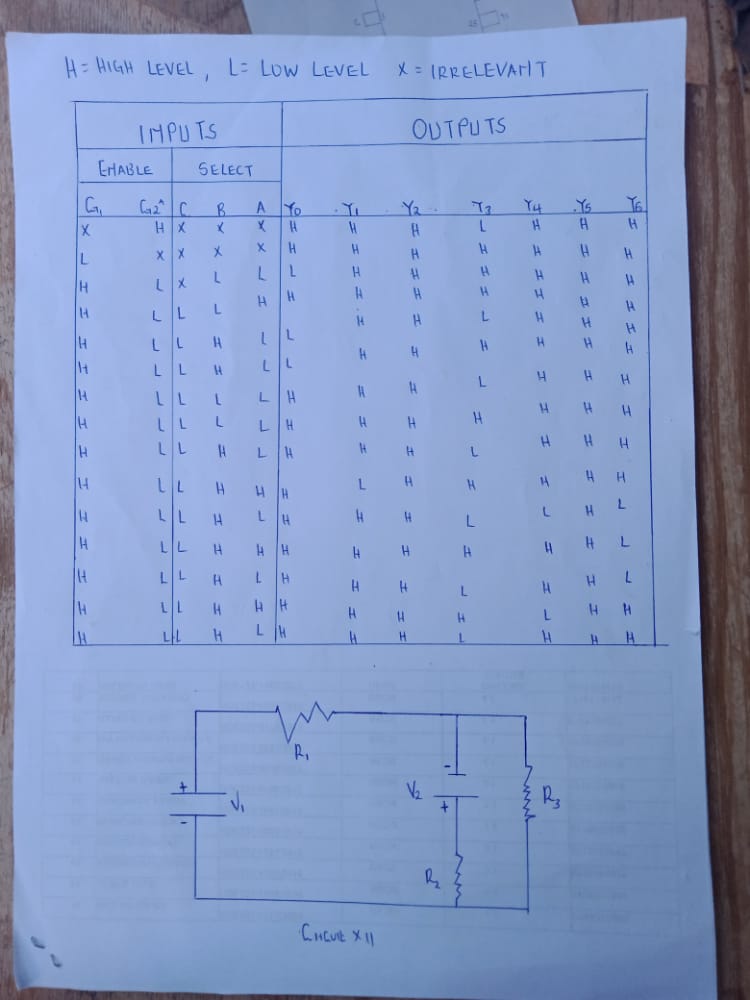 H = HIGH LEVEL , L = LOW LEVEL X = IRRELEVANT
INPUTS OUTPUTS
ENABLE SELECT
G1 G2* C B A Y0 Y1 Y2 Y3 Y4 Y5 Y6
X H X X X H H H L H H H
L X X X X H H H H H H H
H L X L L L H H H H H H
H L L L H H H H H H H H
H L L H L L H H L H H H
H L L H L L H H H H H H
H L L L L H H H L H H H
H L L L L H H H H H H H
H L L H L H H H L H H H
H L L H H H L H H H H H
H L L H L H H H L L H L
H L L H H H H H H H H L
H L L H L H H H L H H L
H L L H H H H H H L H H
H L L H L H H H L H H H
R1
+ V1 -
- V2 +
R3
R2
CIRCUIT X11